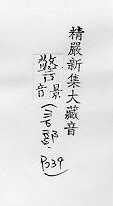 精嚴新集大藏音
警
景
音
(言部)
P339